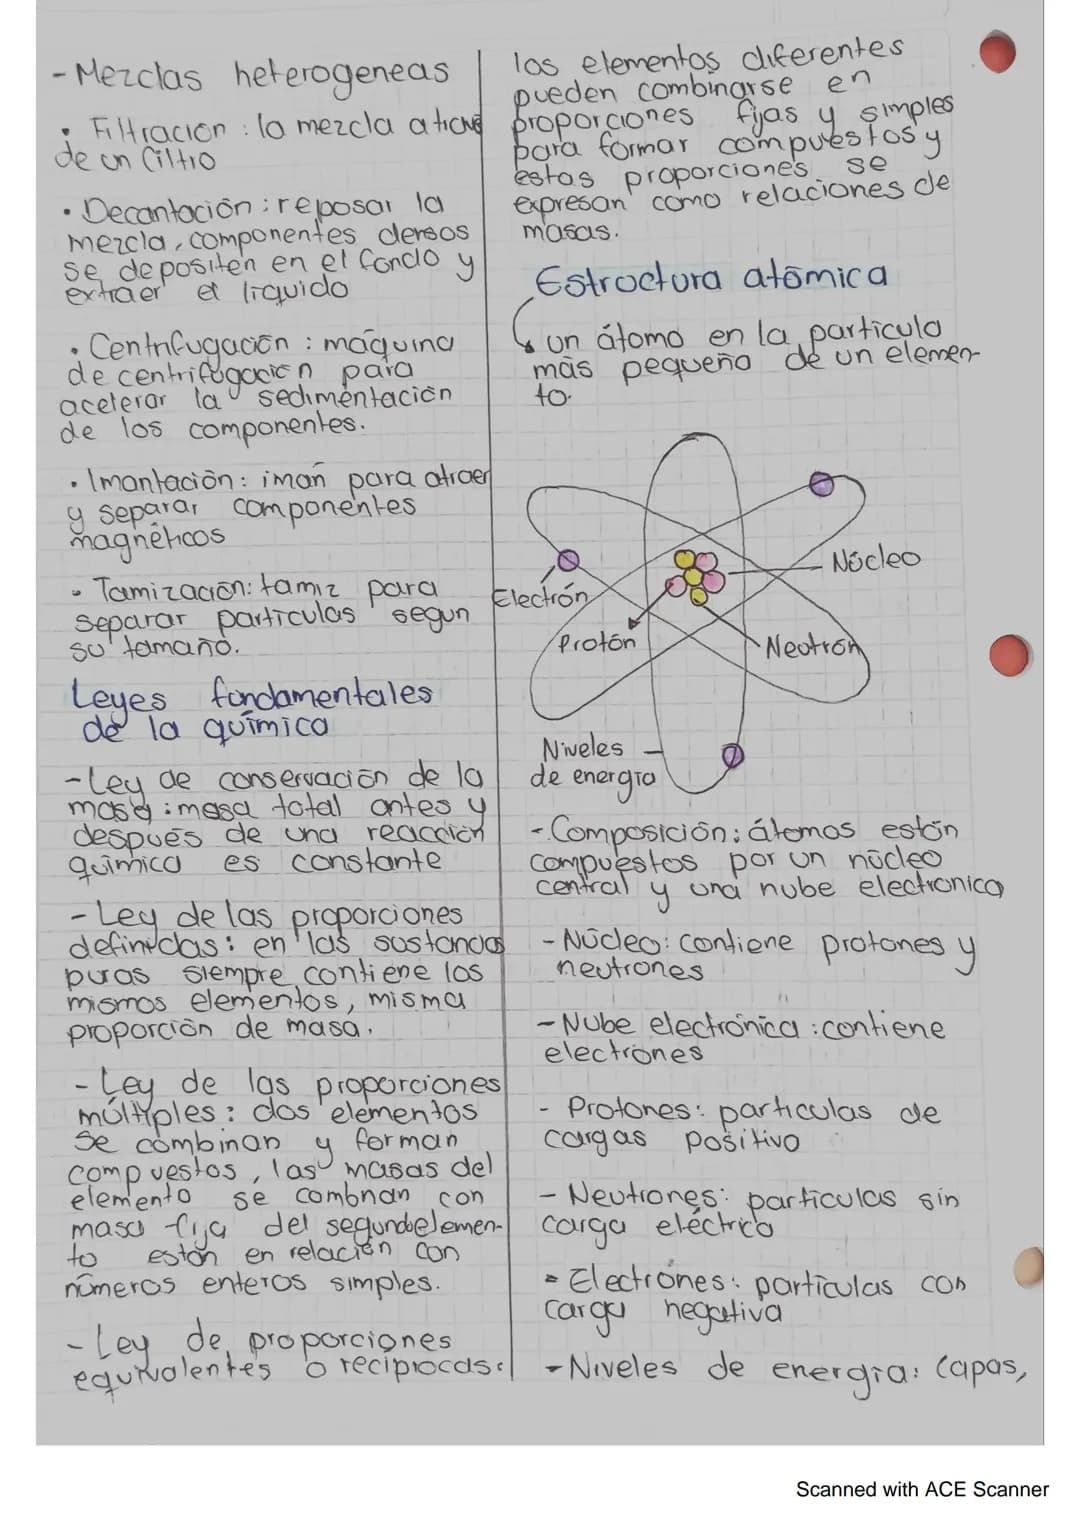 - Mezclas heterogeneas
• Filtración : la mezcla
de un filtro
• Decantación : reposar la
mezcla, componentes densos
se depositen en el fondo y
extraer el liquido
• Centrifugación : máquina
de centrifugación para
acelerar la sedimentación
de los componentes.
• Imantación: imán para atraer
y separar componentes
magnéticos
• Tamización: tamiz para
separar particulas segun
su tamaño.
Leyes fundamentales
de la química
- Ley de conservación de la
masa : masa total antes y
después de una reacción
química es constante
- Ley de las proporciones
definidas : en las sustancias
puras siempre contiene los
mismos elementos, misma
proporción de masa.
- Ley de las proporciones
múltiples : dos elementos
se combinan y forman
compuestos, las masas del
elemento se combnan con
masa fija del segundoelemen-
to están en relación con
números enteros simples.
- Ley de proporciones
equivalentes o reciprocas :
los elementos diferentes
pueden combinarse en
proporciones fijas y simples
para formar compuestos y
estas proporciones se
expresan como relaciones de
masas.
Estructura atómica
un átomo en la particula
más pequeña de un elemen-
to.
Núcleo
Electrón
Protón
Neutrón
Niveles
de energía
- Composición : átomos están
compuestos por un núcleo
central y una nube electronica
- Núcleo : contiene protones y
neutrones
- Nube electrónica : contiene
electrones
- Protones : particulas de
cargas positivo
- Neutrones : particulas sin
carga eléctrica
- Electrones : partículas con
carga negativa
- Niveles de energía : Capas,
Scanned with ACE Scanner